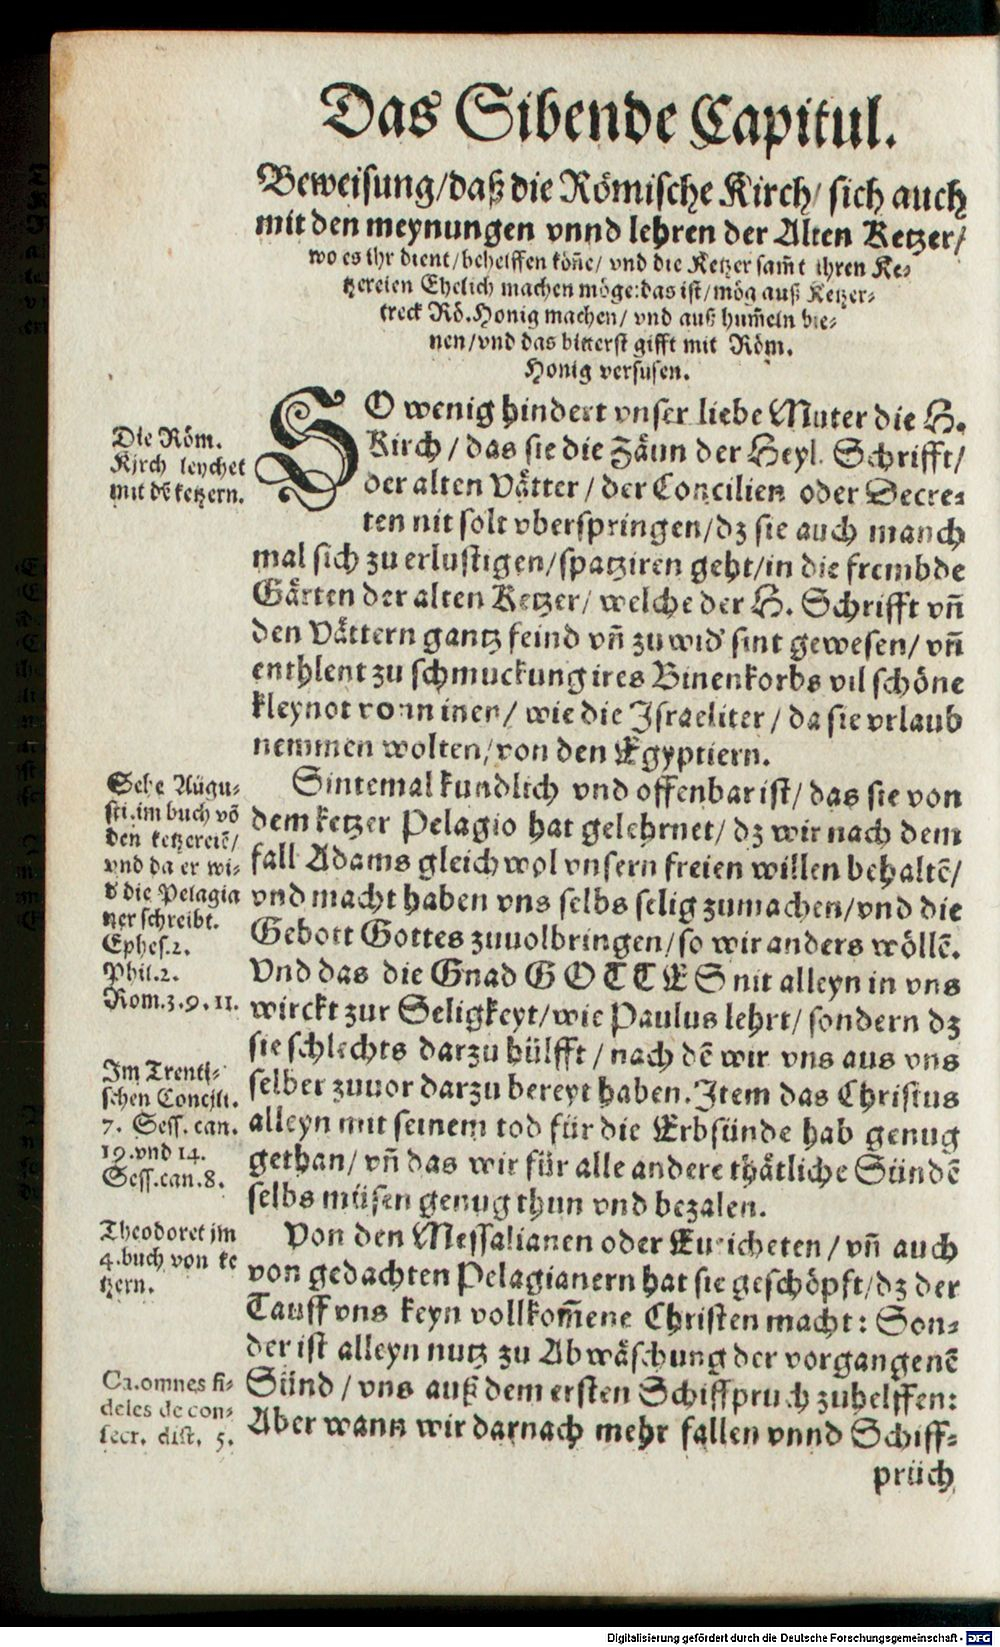 Das Sibende Capitul.
Beweisung/daß die Römische Kirch/ sich auch
mit den meynungen vnnd lehren der Alten Ketzer/
wo es ihr dient/behelffen köñe/ vnd die Ketzer sam̃t ihren Ke-
tzereien Ehelich machen möge:das ist/mög auß Ketzer-
treck Rö.Honig machen/ vnd auß hum̃eln bie-
nen/vnd das bitterst gifft mit Röm.
Honig versusen.
SO wenig hindert vnser liebe Muter die H.
Kirch/ das sie die Zäun der Heyl. Schrifft/
der alten Vätter/ der Concilien oder Decre-
ten nit solt vberspringen/dz sie auch manch
mal sich zu erlustigen/spatziren geht/in die frembde
Gärten der alten Ketzer/ welche der H. Schrifft vñ
den Vättern gantz feind vñ zuwid' sint gewesen/ vñ
enthlent zu schmuckung ires Binenkorbs vil schöne
kleynot vonn inen/ wie die Israeliter/ da sie vrlaub
nemmen wolten/von den Egyptiern.
Sintemal kundlich vnd offenbar ist/ das sie von
dem ketzer Pelagio hat gelehrnet/ dz wir nach dem
fall Adams gleichwol vnsern freien willen behaltẽ/
vnd macht haben vns selbs selig zumachen/vnd die
Gebott Gottes zuuolbringen/so wir anders wöllẽ.
Vnd das die Gnad GOTTES nit alleyn in vns
wirckt zur Seligkeyt/wie Paulus lehrt/ sondern dz
sie schlechts darzu hülfft/ nach dẽ wir vns aus vns
selber zuuor darzu bereyt haben. Item das Christus
alleyn mit seinem tod für die Erbsünde hab genug
gethan/ vñ das wir für alle andere thätliche Sündẽ
selbs müsen genug thun vnd bezalen.
Von den Messalianen oder Eucheten/ vñ auch
von gedachten Pelagianern hat sie geschöpft/dz der
Tauff vns keyn vollkom̃ene Christen macht: Son-
der ist alleyn nutz zu Abwäschung der vorgangenẽ
Sünd/ vns auß dem ersten Schiffpruch zuhelffen:
Aber wann wir darnach mehr fallen vnnd Schiff-
prüch
Die Röm.
Kirch leychet
mit dẽ ketzern.
Sehe Augu-
sti.im buch võ
den ketzereiẽ/
vnd da er wi-
d' die Pelagia
ner schreibt.
Ephes.2.
Phil.2.
Rom.3.9.11.
Im Trenti-
schen Concili.
7. Sess. can.
19.vnd 14.
Sess.can.8.
Theodoret im
4.buch von ke
tzern.
Ca.omnes fi-
deles de con-
secr. dist. 5.
Digitalisierung gefördert durch die Deutsche Forschungsgemeinschaft - DFG